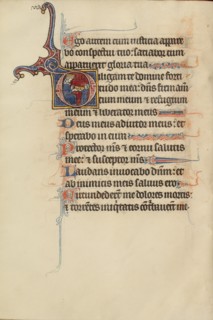 ego autem cum iusticia appare
bo conspectui tuo: saciabor cum
apparuerit gloria tua
Diligam te domine forti
tudo mea: dñs firmam̄
tum meum et refugium
meum et liberator meus
Deus meus adiutor meus: et
sperabo in eum
Protector ms̄ et cornu salutis
mee: et susceptor ms̄
Laudans inuocabo dnm̄: et
ab inimicis meis saluus ero
Circundederūt me dolores mortis:
et torrentes iniquitatis cōturbauerūt me